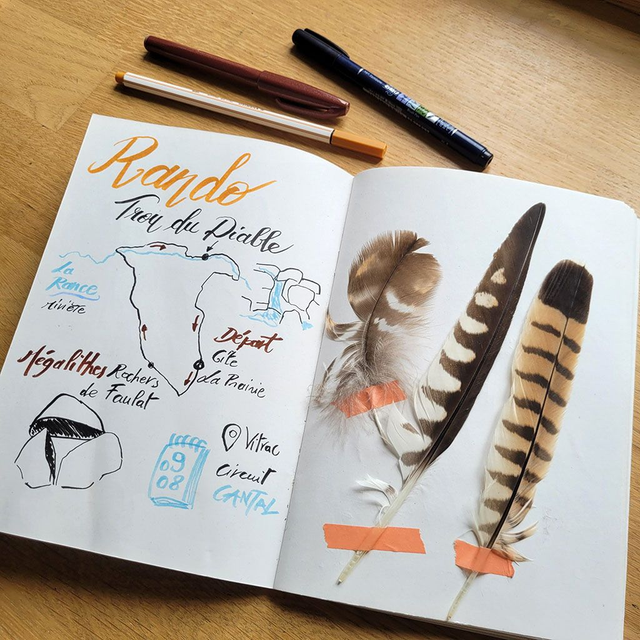 Rando
Trou du Diable
La
Rance
rivière
Départ
Gîte
La Prairie
Mégalithes Rochers
de Faulat
09
08
Vitrac
circuit
CANTAL